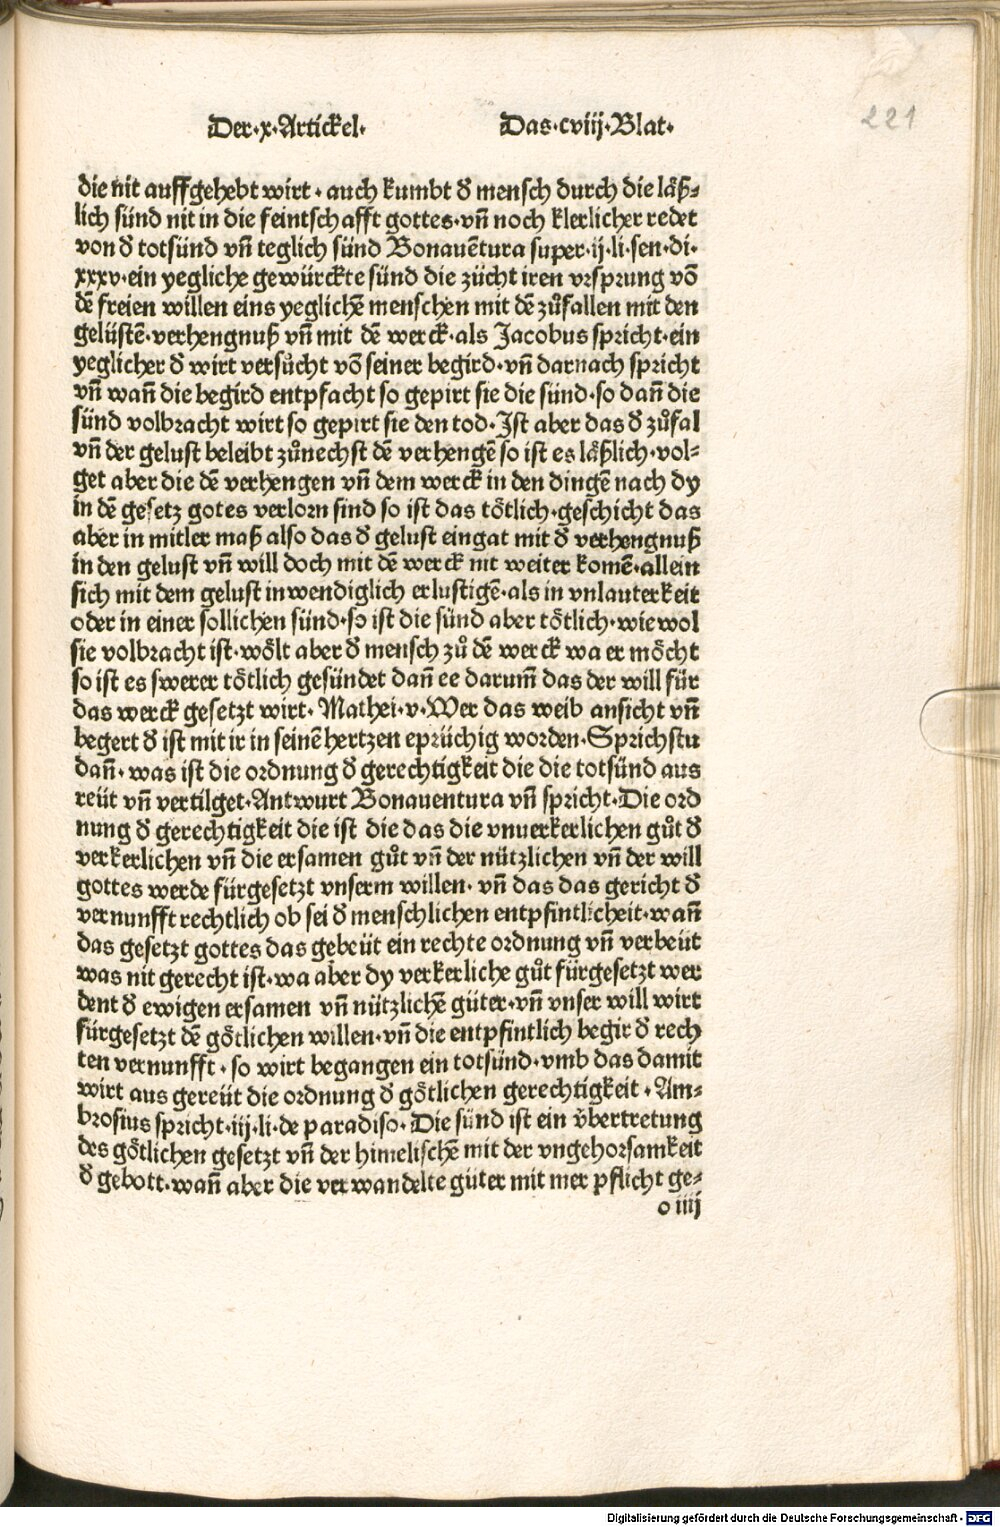 Der·x·Artickel·
Das·cviij·Blat·
221
die nit auffgehebt wirt·auch kumbt d̕ mensch durch die läß⸗
lich sünd nit in die feintschafft gottes·vñ noch klerlicher redet
von d̕ totsünd vñ teglich sünd Bonauẽtura super·ij·li·sen·di·
xxxv·ein yegliche gewürckte sünd die zücht iren vrsprung võ
dẽ freien willen eins yeglichẽ menschen mit dẽ zůfallen mit den
gelüstẽ·verhengnuß vñ mit dẽ werck·als Jacobus spricht·ein
yeglicher d̕ wirt versůcht võ seiner begird·vñ darnach spricht
vñ wañ die begird entpfacht so gepirt sie die sünd·so dañ die
sünd volbracht wirt so gepirt sie den tod·Jst aber das d̕ zůfal
vñ der gelust beleibt zůnechst dẽ verhengẽ so ist es läßlich·vol⸗
get aber die dẽ verhengen vñ dem werck in den dingẽ nach dy
in dẽ gesetz gotes verlorn sind so ist das tötlich·geschicht das
aber in mitler maß also das d̕ gelust eingat mit d̕ verhengnuß
in den gelust vñ will doch mit dẽ werck nit weiter komẽ·allein
sich mit dem gelust inwendiglich erlustigẽ·als in vnlauterkeit
oder in einer sollichen sünd·so ist die sünd aber tötlich·wie wol
sie volbracht ist·wölt aber d̕ mensch zů dẽ werck wa er möcht
so ist es swerer tötlich gesündet dañ ee darum̃ das der will für
das werck gesetzt wirt·Mathei·v·Wer das weib ansicht vñ
begert d̕ ist mit ir in seinẽ hertzen eprüchig worden·Sprichstu
dañ·was ist die ordnung d̕ gerechtigkeit die die totsünd aus
reüt vñ vertilget·Antwurt Bonauentura vñ spricht·Die ord
nung d̕ gerechtigkeit die ist die das die vnuerkerlichen gůt d̕
verkerlichen vñ die ersamen gůt vñ der nützlichen vñ der will
gottes werde fürgesetzt vnserm willen·vñ das das gericht d̕
vernunfft rechtlich ob sei d̕ menschlichen entpfintlicheit·wañ
das gesetzt gottes das gebeüt ein rechte ordnung vñ verbeüt
was nit gerecht ist·wa aber dy verkerliche gůt fürgesetzt wer
dent d̕ ewigen ersamen vñ nützlichẽ güter·vñ vnser will wirt
fürgesetzt dẽ götlichen willen·vñ die entpfintlich begir d̕ rech
ten vernunfft·so wirt begangen ein totsünd·vmb das damit
wirt aus gereüt die ordnung d̕ götlichen gerechtigkeit·Am⸗
brosius spricht·iij·li·de paradiso·Die sünd ist ein v̈bertretung
des götlichen gesetzt vñ der himelischẽ mit der vngehorsamkeit
d̕ gebott·wañ aber die verwandelte güter mit mer pflicht ge⸗
o iiij
Digitalisierung gefördert durch die Deutsche Forschungsgemeinschaft - DFG